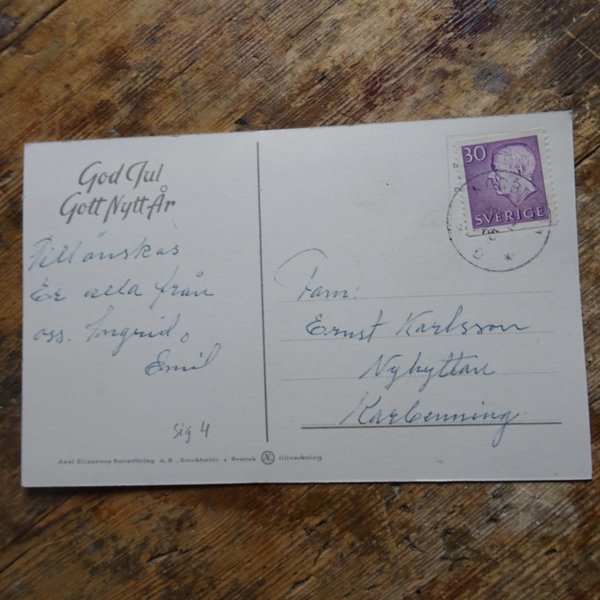 God Jul
Gott Nytt År
Tillönskas
Er alla från
oss. Ingrid o
Emil
Sig 4
30
SVERIGE
Fam:
Ernst Karlsson
Nyhyttan
Karbenning
Axel Eliassons Konstförlag A.B., Stockholm . Svensk Æ tillverkning